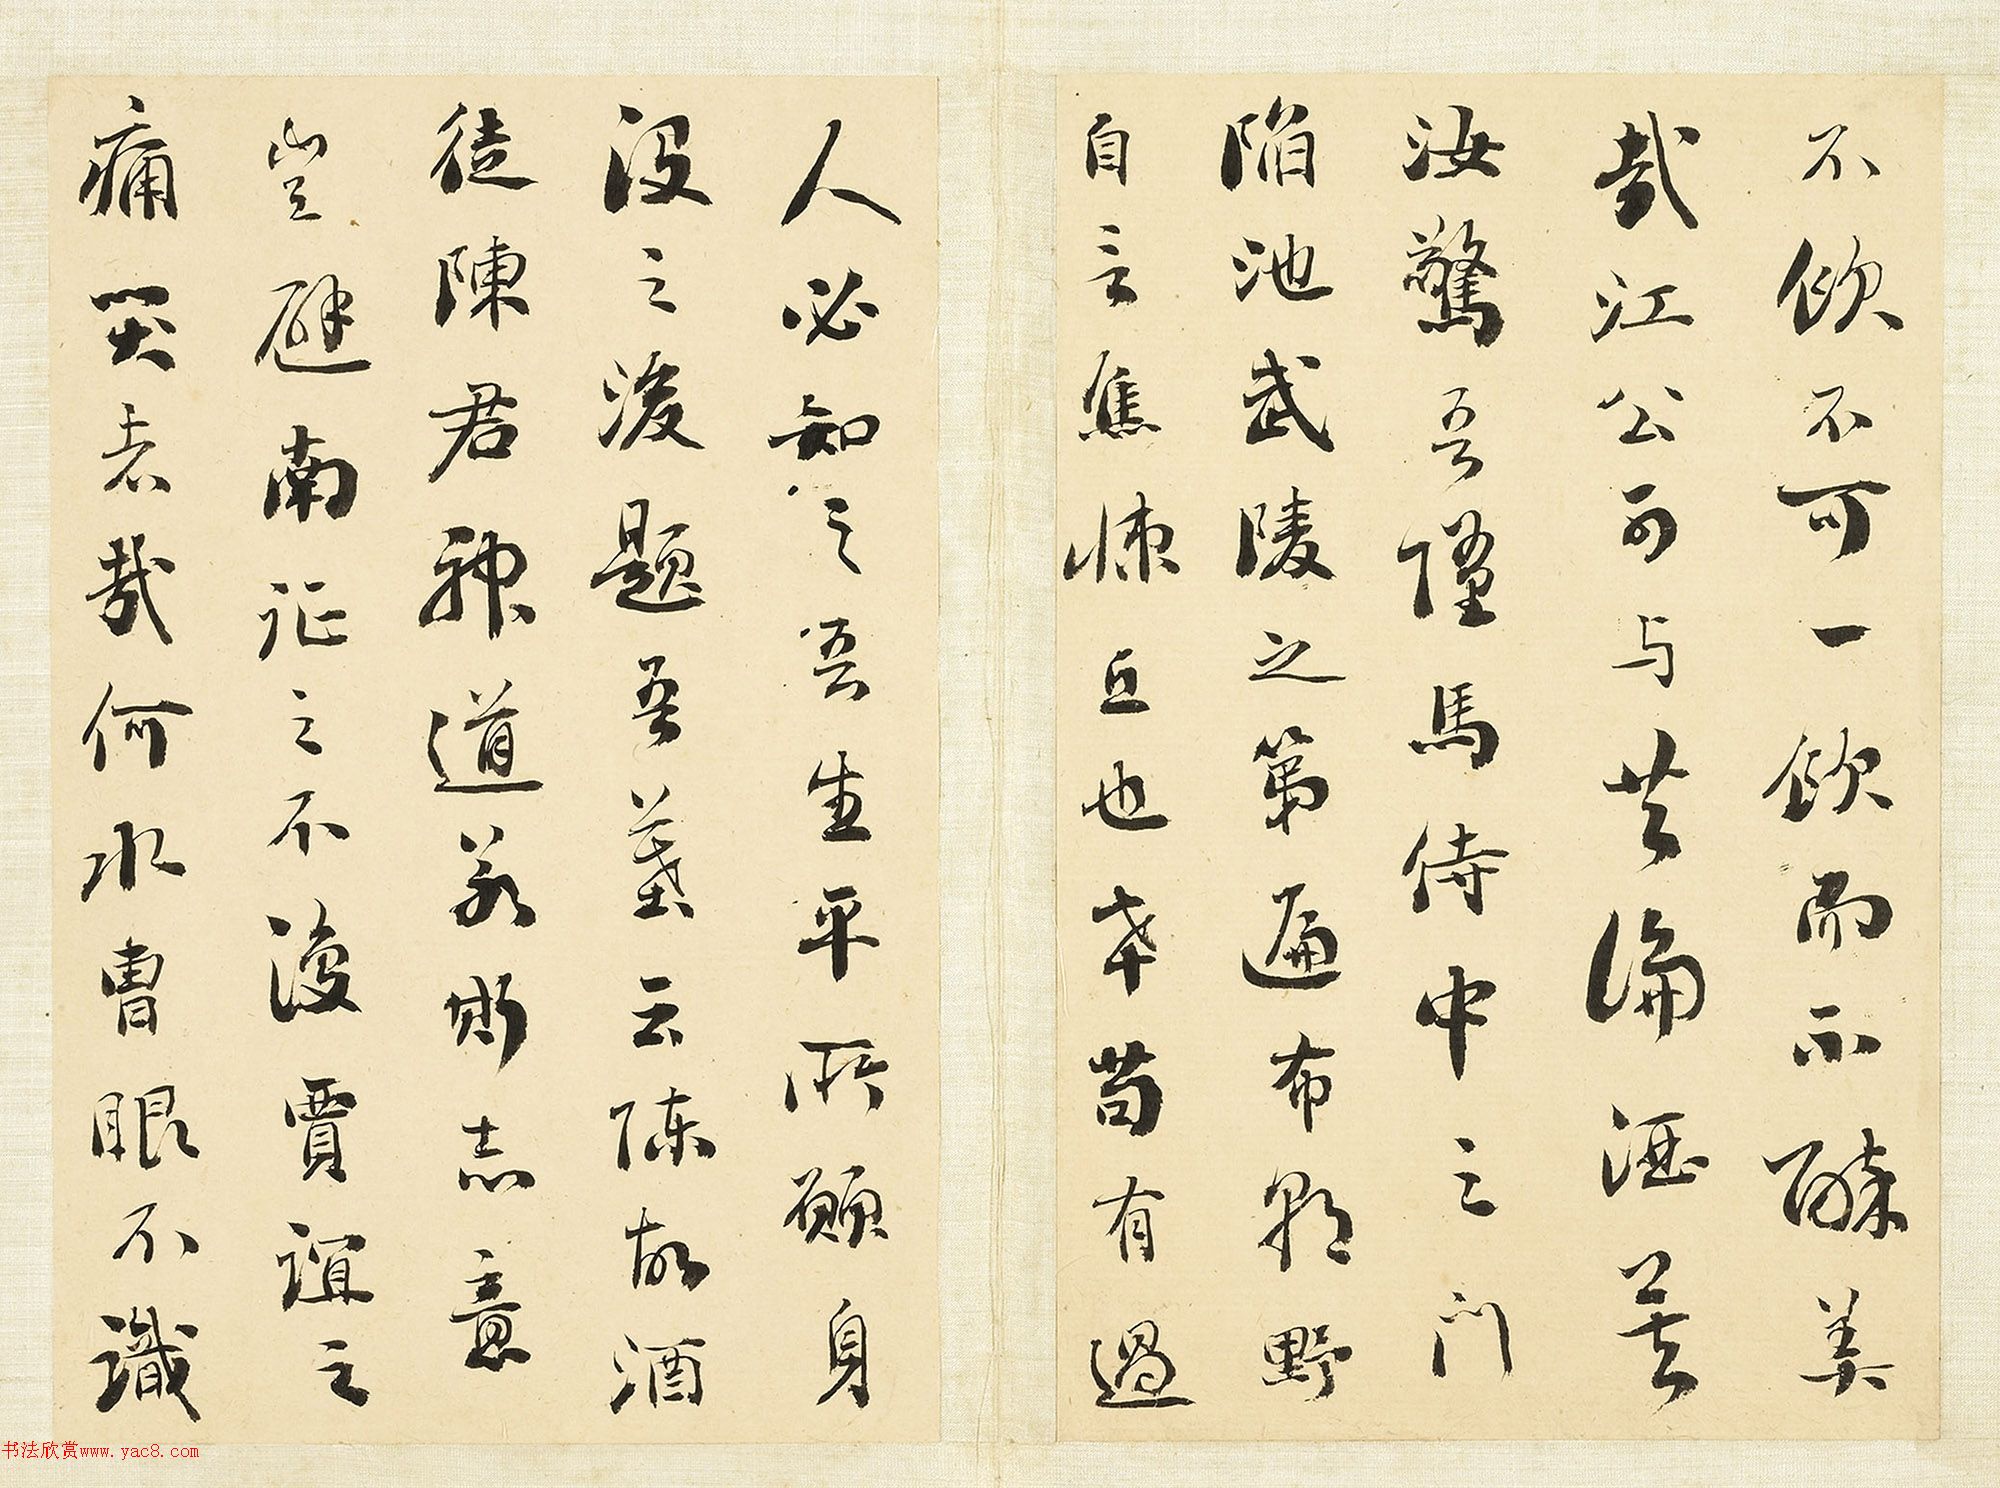 不飲不可一飲而不醉美
哉江公可与共論酒矣
汝驚吾墮馬侍中之門
陷池武陵之第遍布朝野
自言焦悚丘也幸苟有過
人必知之吾生平所願身
沒之後題吾墓云陳故酒
徒陳君神道若斯志意
豈避南征之不復賈誼之
痛哭者哉何水曹眼不識
书法欣赏www.yac8.com